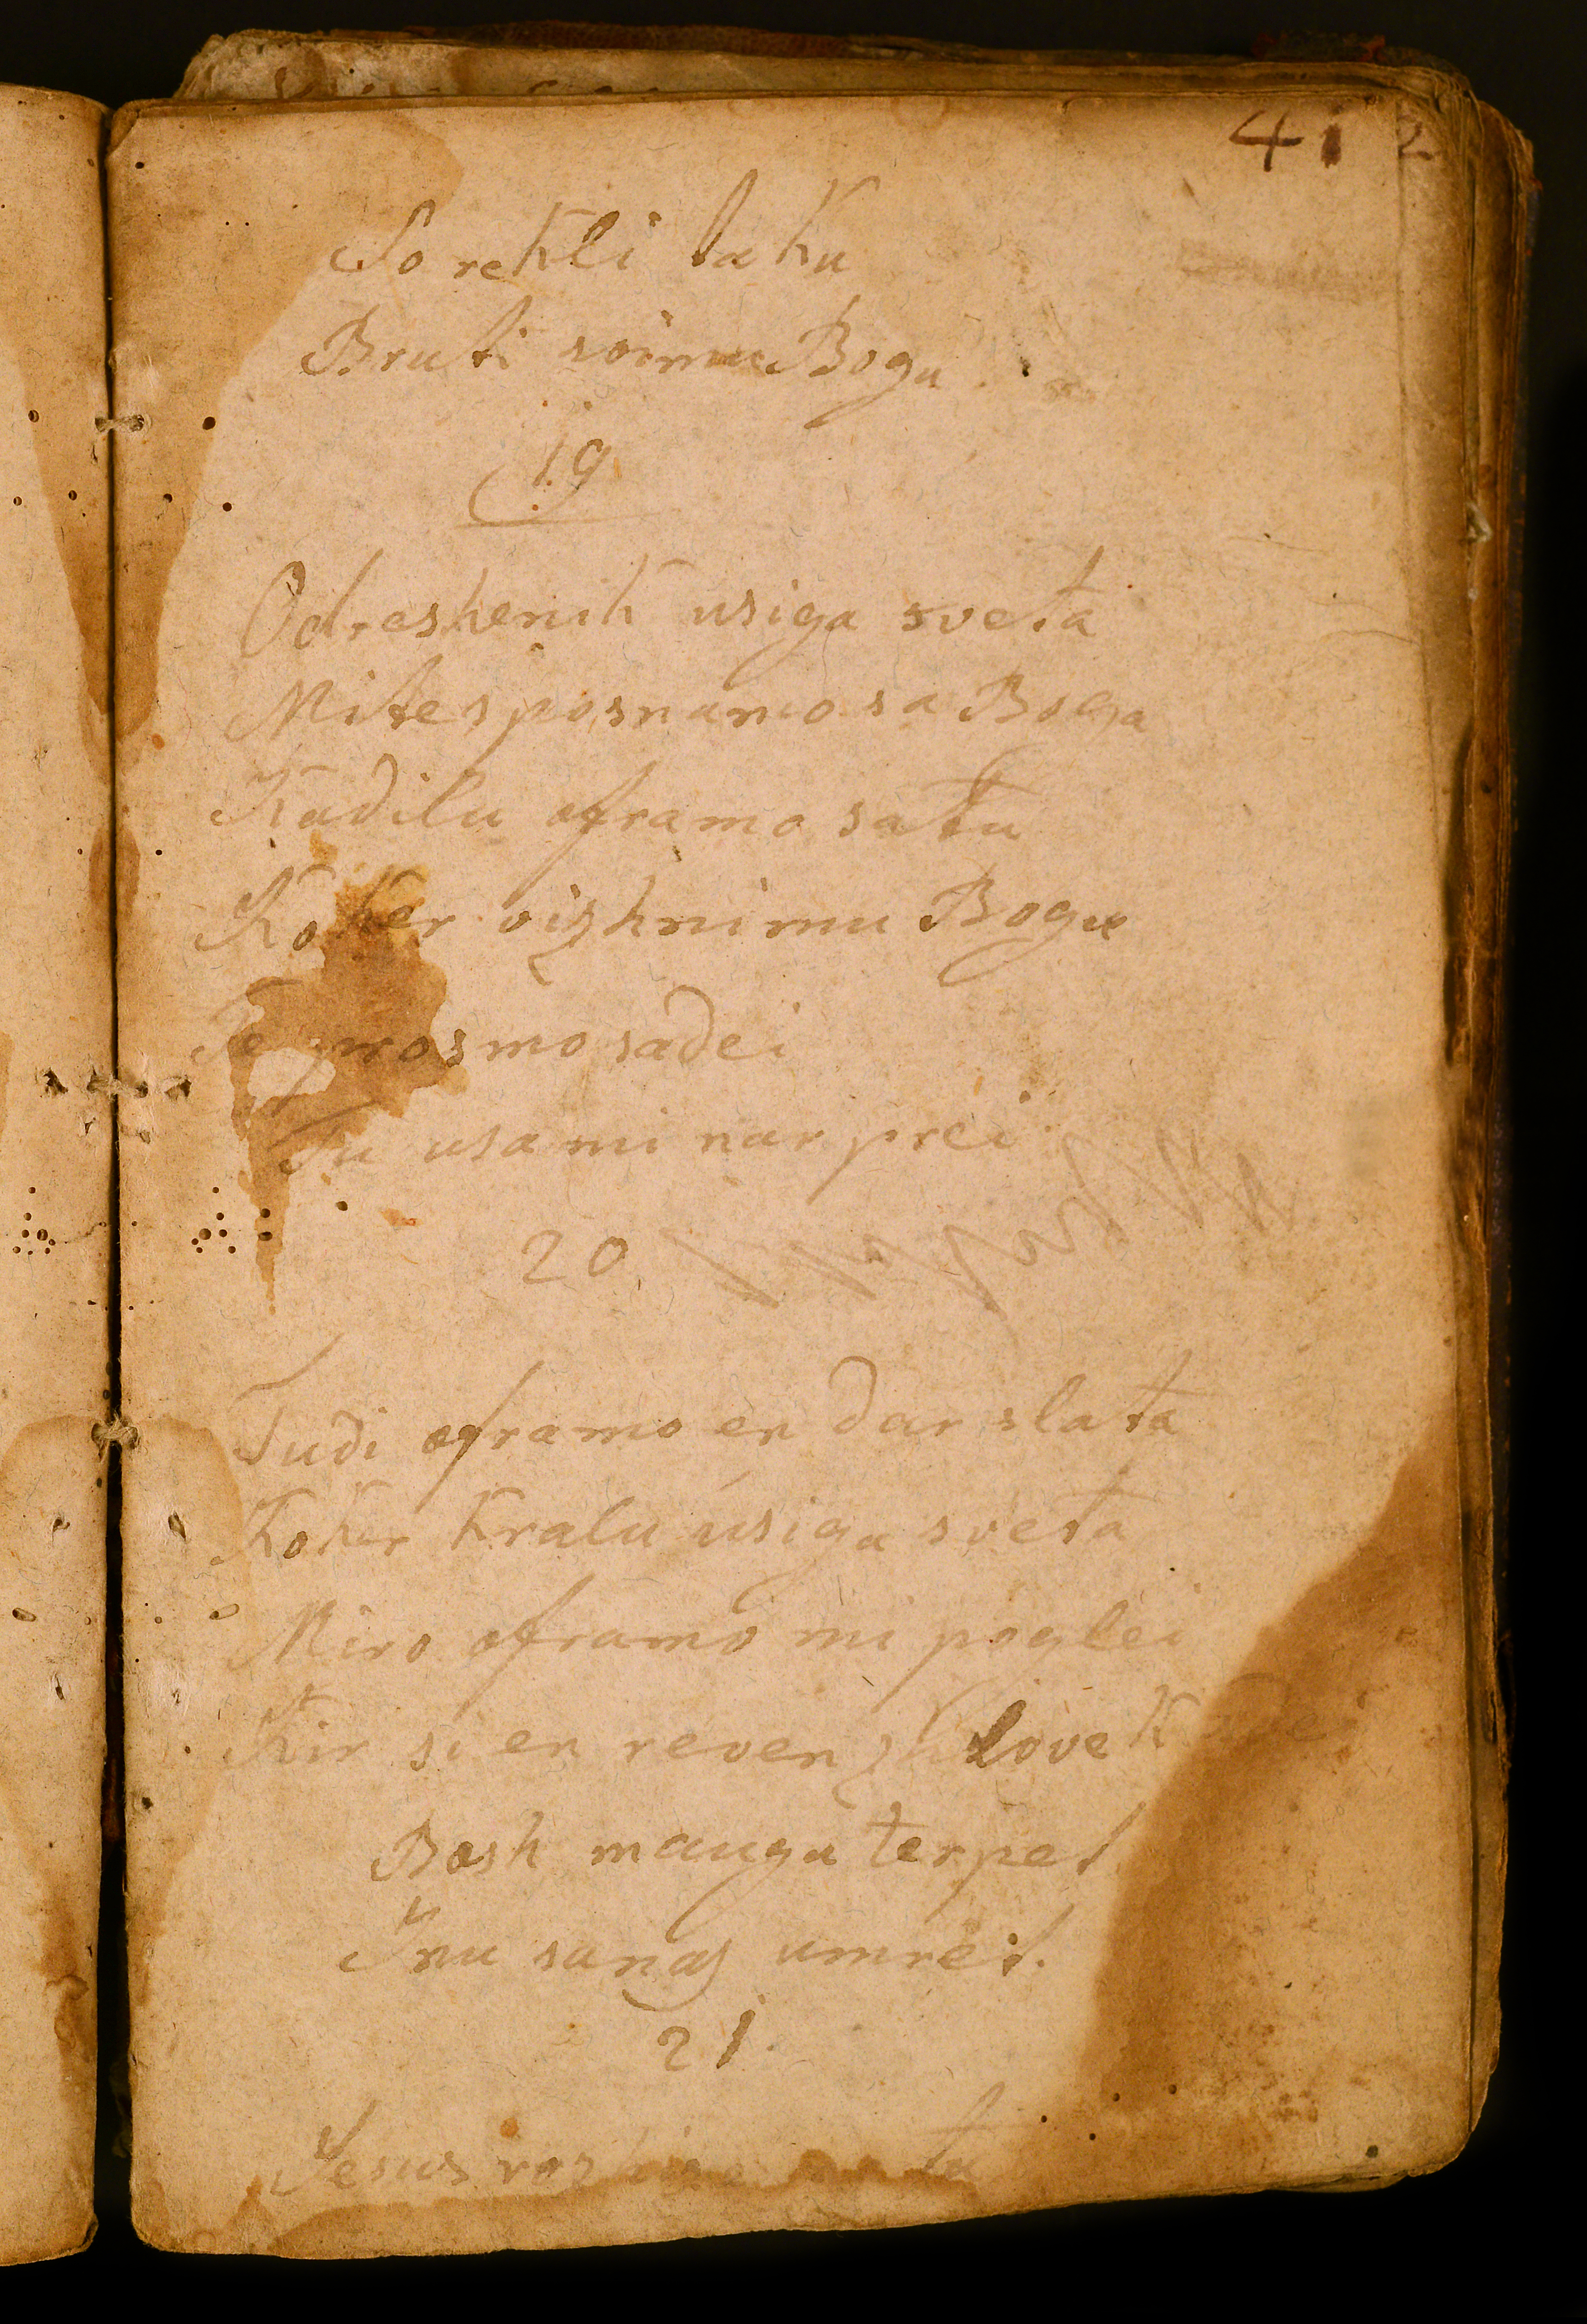 41 2
So rekli taku
Bruti svimu Bogu.
19
Odreshenik usiga sveta
Mi tes posnamo sa Boga
Kadilu oframo satu
Koker vizhnimu Bogu
Te prosmo sadei
Tu usa mi nar prei
20
Tudi oframo en dar slata
Koker kralu usiga sveta
Miro oframo mi poglei
Kir si en reven zhlovek
Bosh mangu terpet
Inu sanas umret.
21.
Jesus